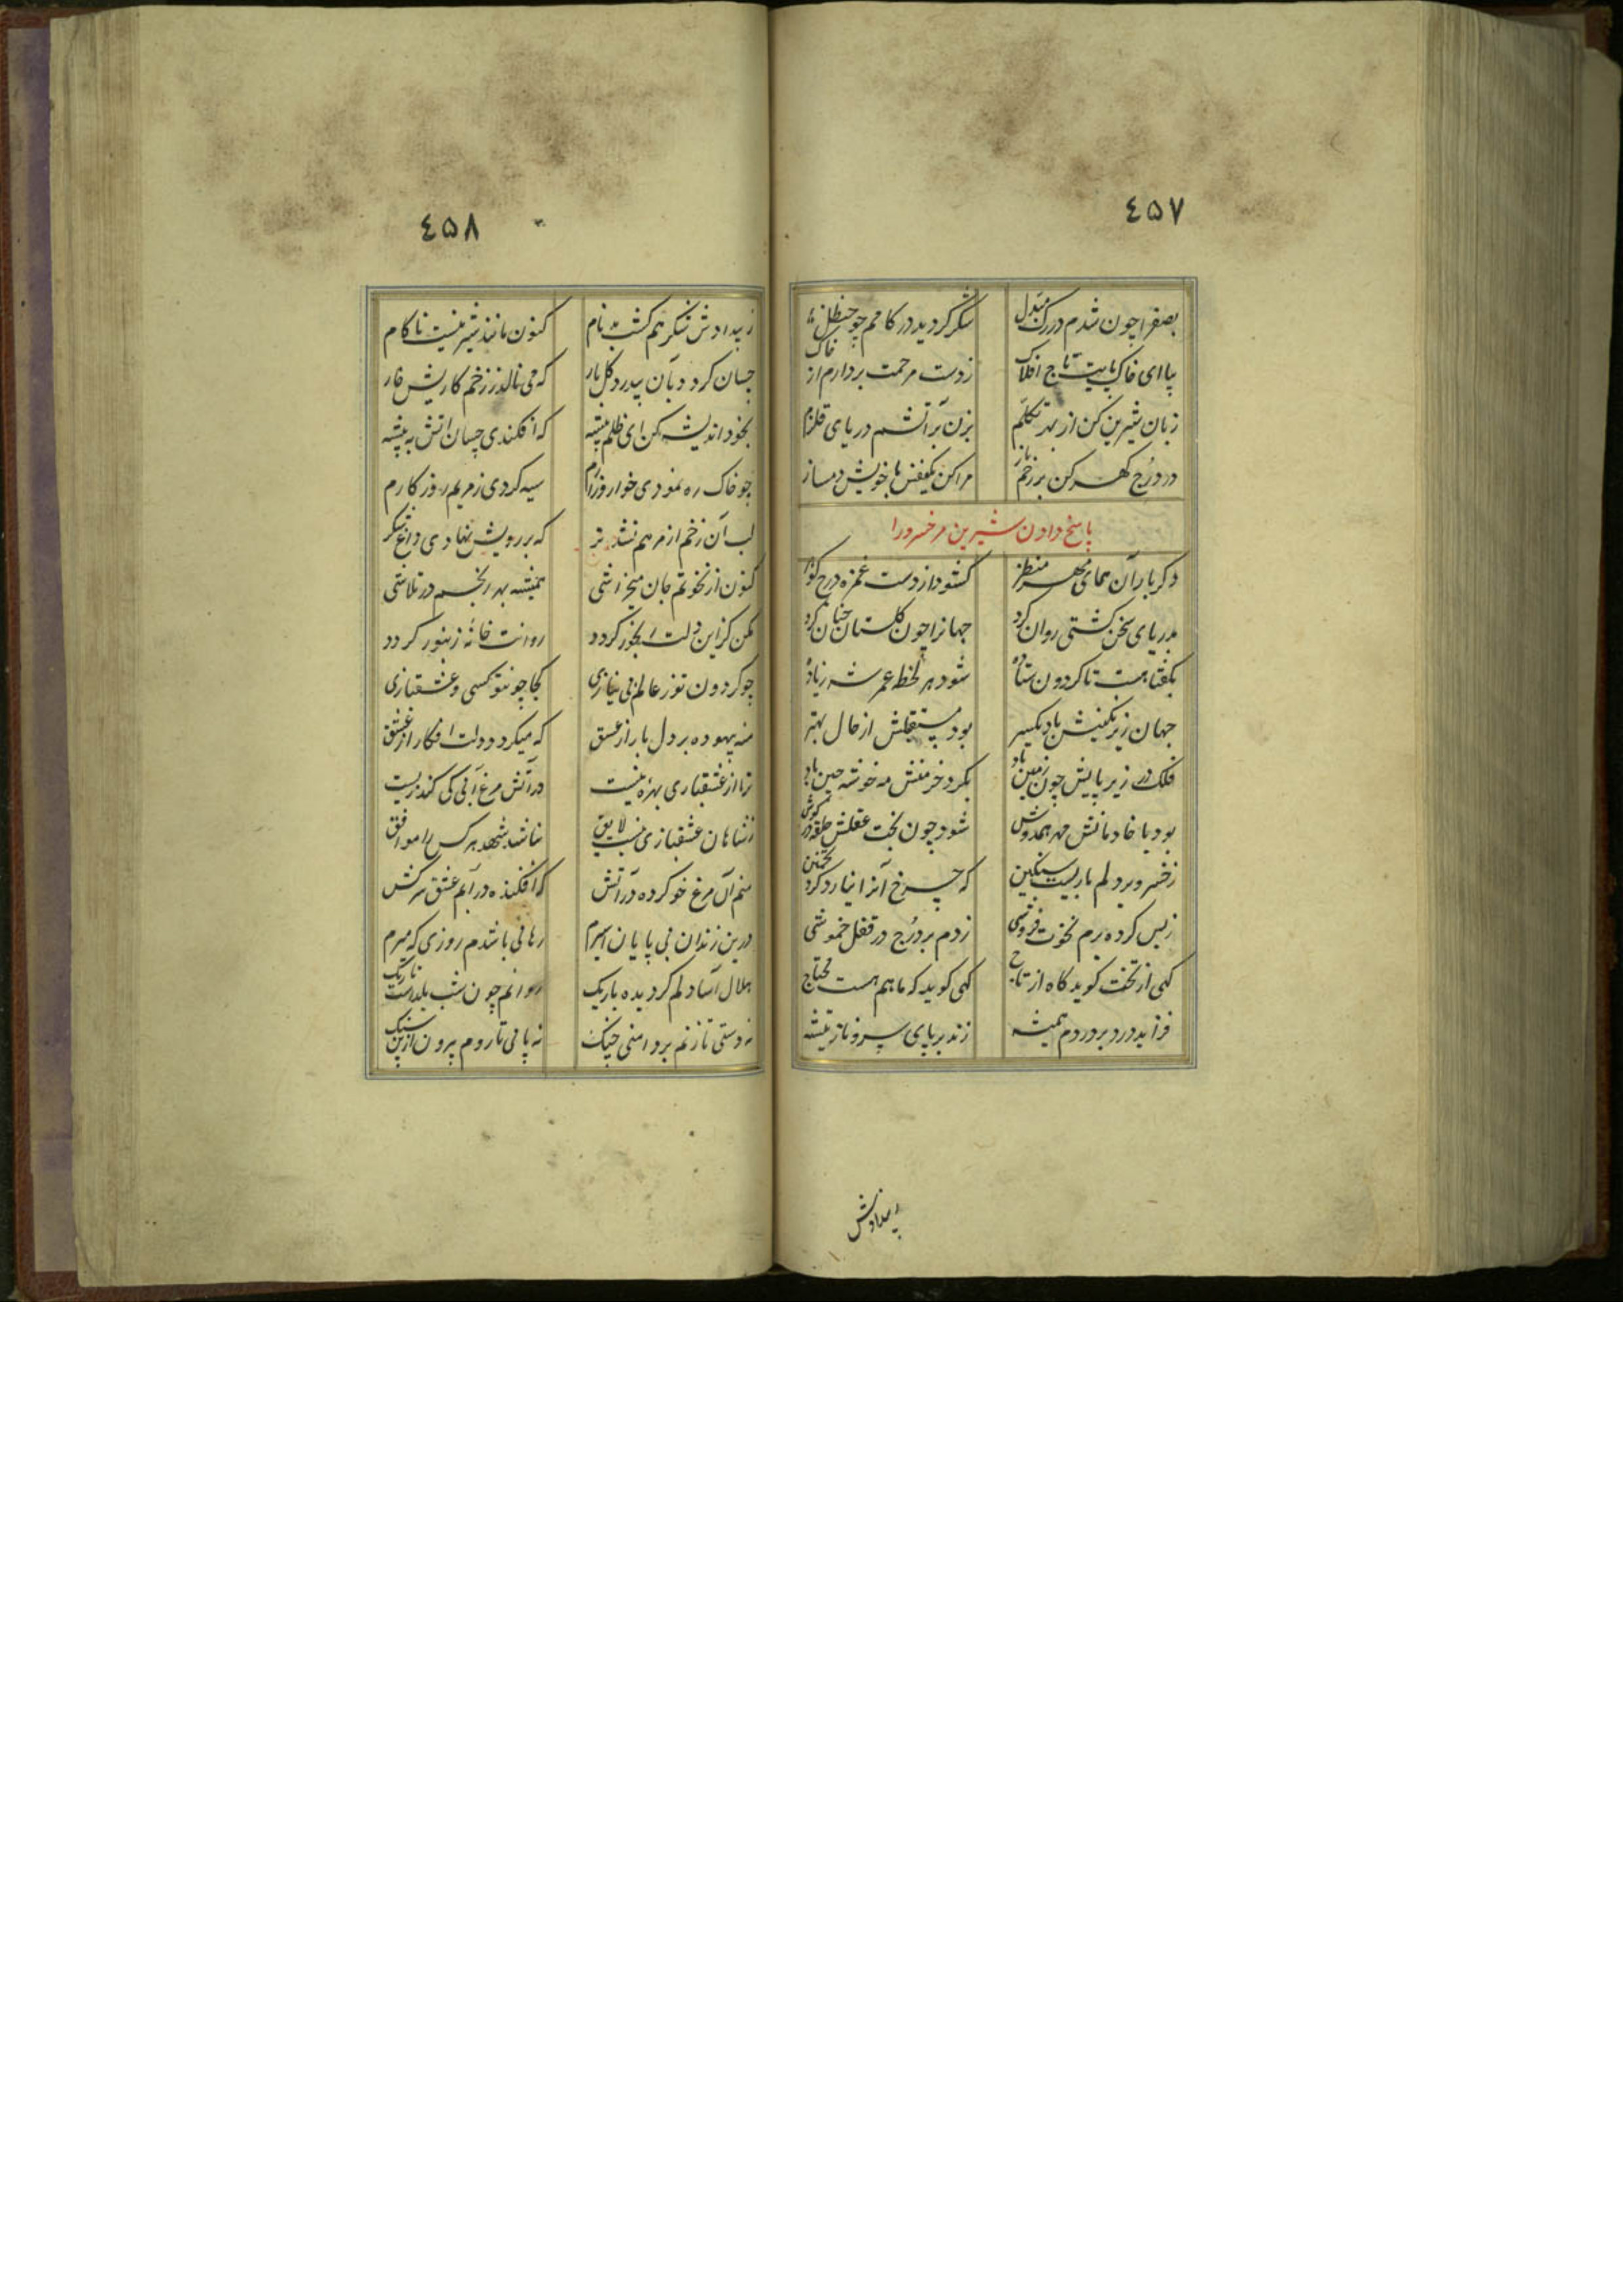 ٤٥٧
بصفرا چون شدم در رک مبدل شکر کردید در کامم چو حنظل
بیا ای خاک پایت تاج افلاک ز دست مرحمت بردارم از خاک
زبان شیرین کن از بهر تکلم بزن بر آتشم دریای قلزم
در درج کهر کن بر رخم باز مرا کن یکنفس با خویش دمساز
پاسخ دادن شیرین مر خسرو را
دکر بار آن همای مهر منظر کشود از دست غمزه درج کوهر
بدریای سخن کشتی روان کرد جهانرا چون کلستان جنان کرد
بکفتا هست تا کردون ستاده شود هر لحظه عمر شه زیاده
جهان زیر نکینش باد یکسر بود مستقبلش از حال بهتر
فلک در زیر پایش چون زمین باد بکرد خرمنش مه خوشه چین باد
بود با خادمانش مهر همدوش شود چون بخت عقلش حلقه در کوش
ز خسرو بر دلم باریست سنکین که چرخ آنرا نیارد کرد
ز بس کرده برم نخوت فروشی زدم بر درج در قفل خموشی
کهی از تخت کوید کاه از تاج کهی کوید که ما هم هست محتاج
فزاید درد بر دردم همیشه زند بر پای سرو ناز تیشه
بیدادش
٤٥٨
ز بیدادش شکر هم کشت بدنام کنون مانند شیرینست ناکام
چسان کرد د بآن بیدرد کل یار که می نالد ز زخم کاریش خار
بخود اندیشه کن ای ظلم پیشه که افکندی چسان اتش به بیشه
چو خاک ره نمودی خوار و زارم سیه کردی ز مریم روز کارم
لب آن زخم از مرهم نشد تر که بر رویش نهادی داغ شکر
کنون از نخوتم جان میخراشی همیشه بهر رنجم در تلاشی
مکن کز این دلت رنجور کردد روانت خانهٔ زنبور کردد
چو کردون تو ز عالم بی نیازی کجا چون تو کسی و عشقبازی
منه بیهوده بر دل بار از عشق که میکردد دلت افکار از عشق
ترا از عشقبازی بهرهٔ نیست در آتش مرغ آبی کی کند زیست
ز شاهان عشقبازی نیست لایق نباشد شهد هر کس را موافق
منم آن مرغ خو کرده در آتش که افکنده در آبم عشق سرکش
درین زندان بی پایان اسیرم رهائی باشدم روزی که میرم
هلال آسا دلم کردیده باریک روانم چون شب یلداست تاریک
نه دستی تا زنم بر دامنی چنک نه پائی تا روم بیرون ازین سنک